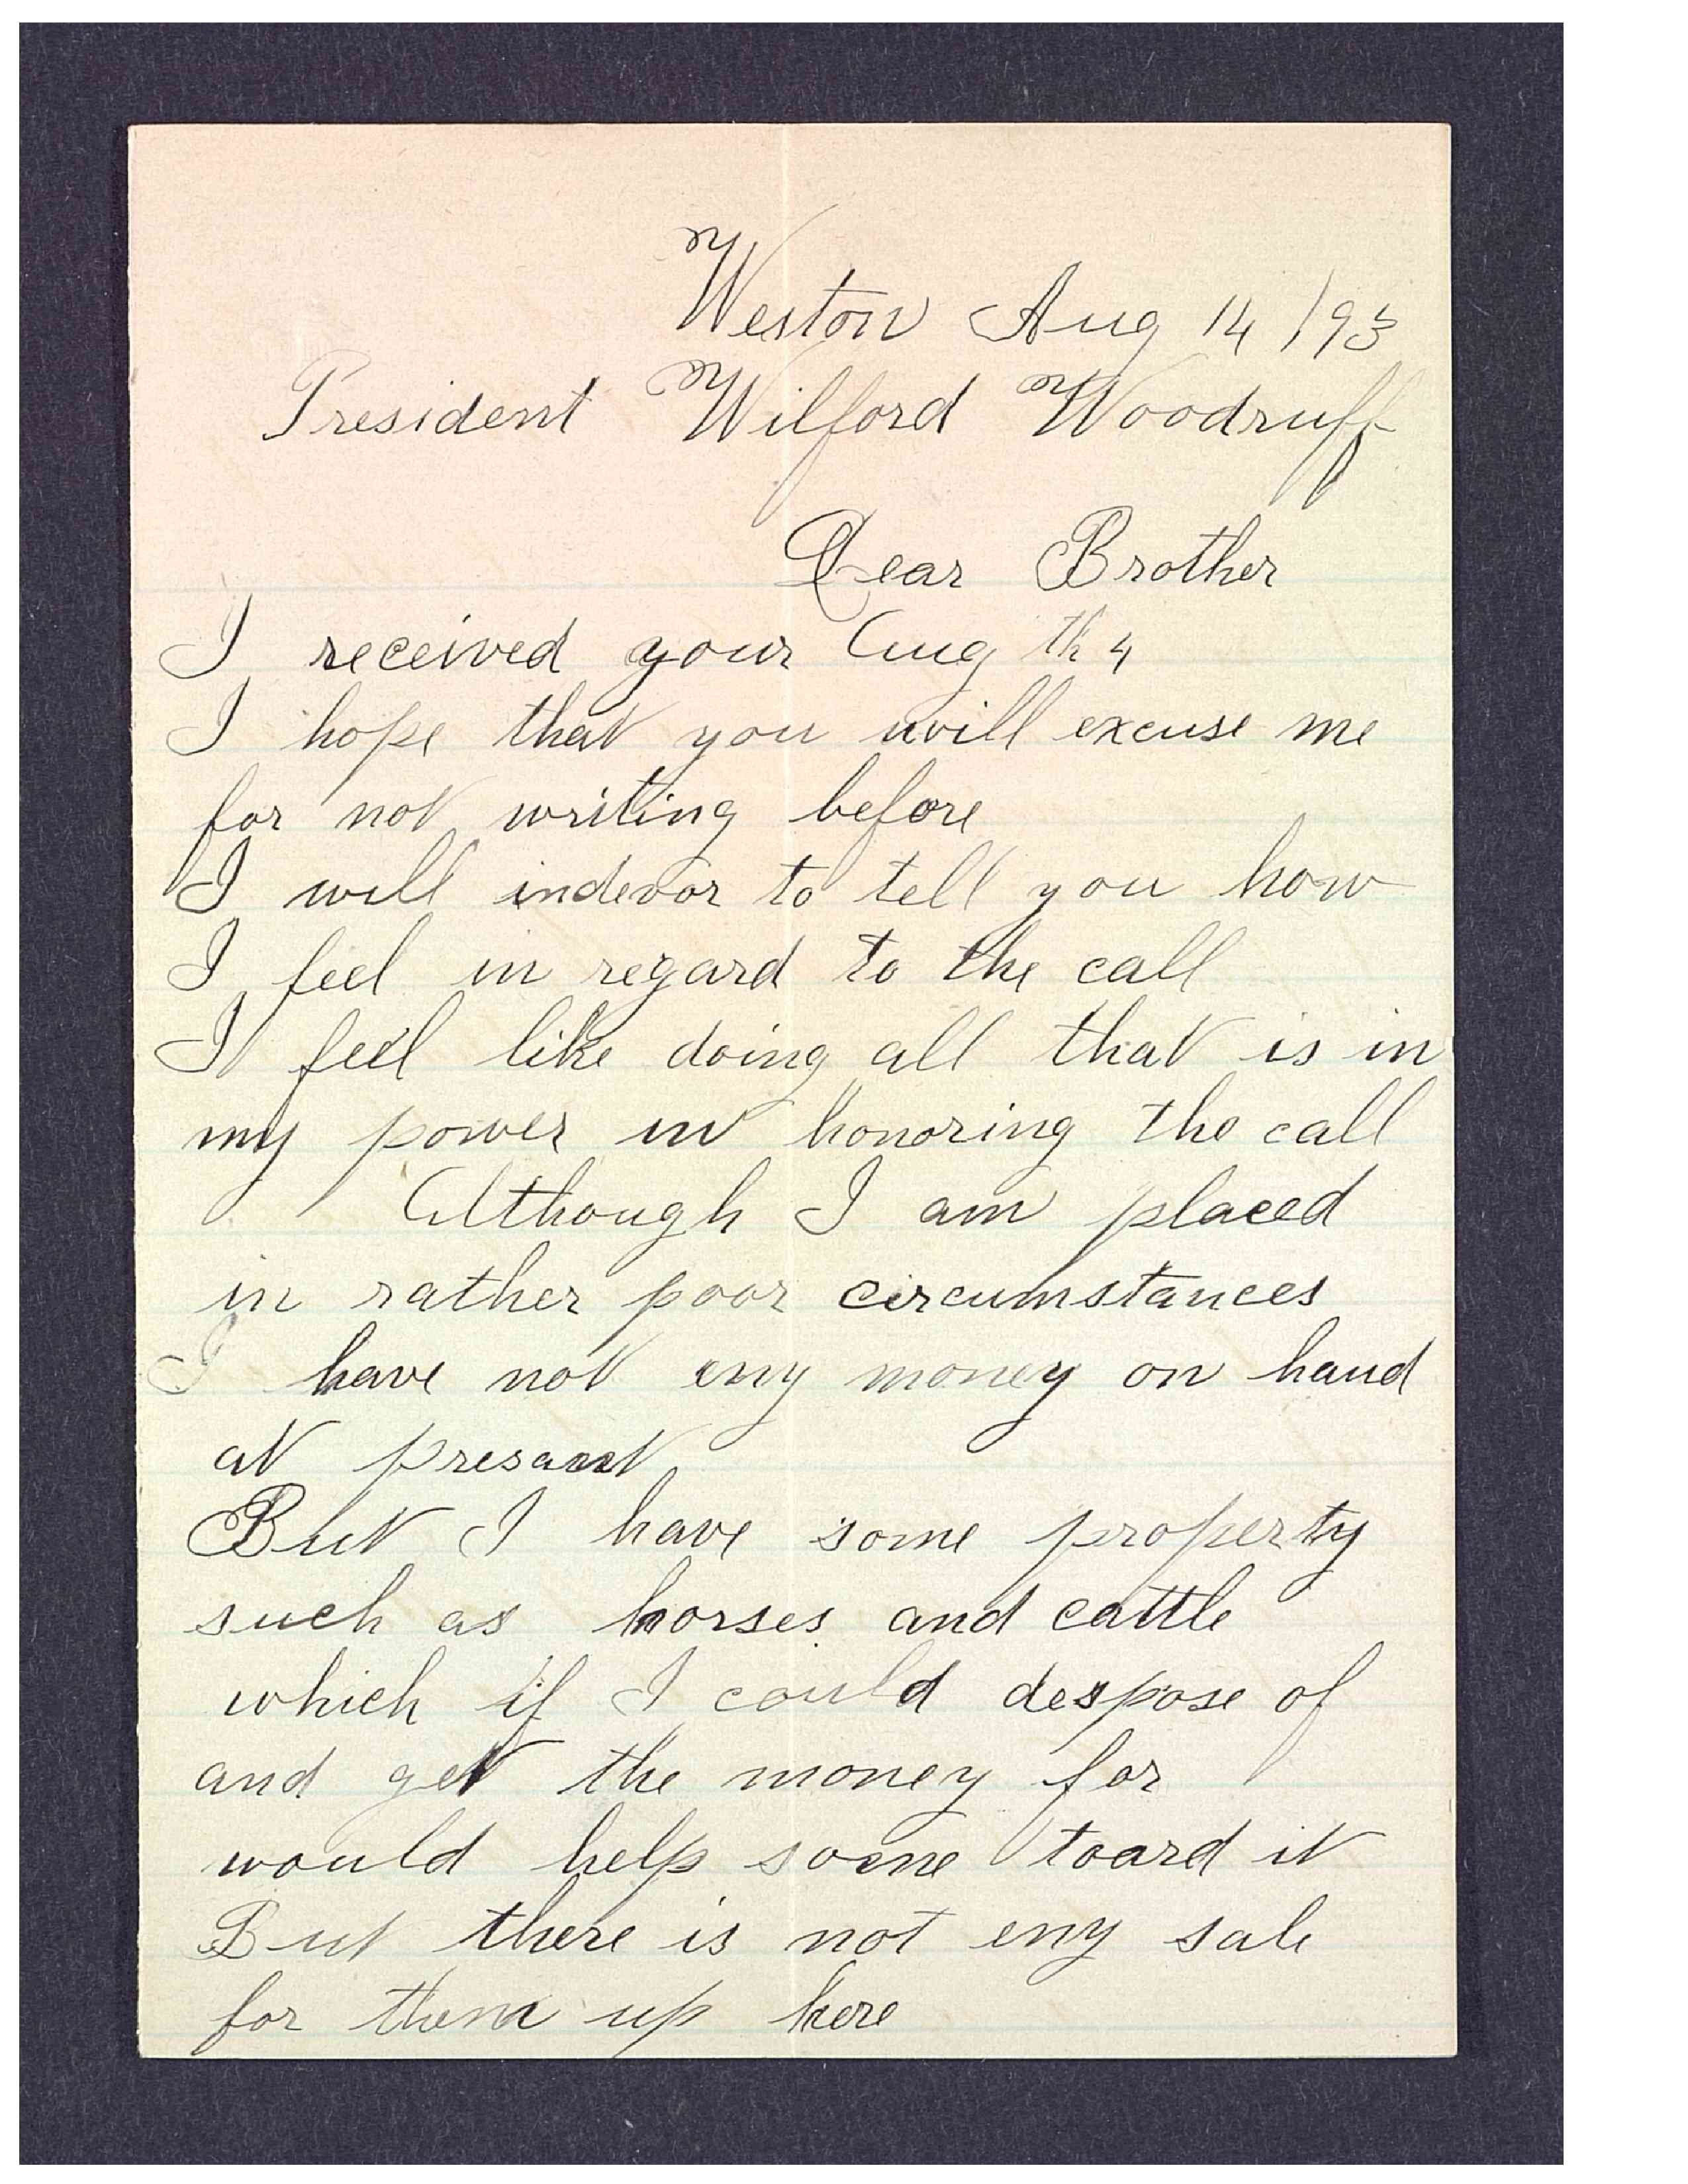 Weston Aug 14 /93
President Wilford Woodruff
Dear Brother
I received your Aug th 4
I hope that you will excuse me
for not writing before
I will indevor to tell you how
I feel in regard to the call
I feel like doing all that is in
my power in honoring the call
Although I am placed
in rather poor circumstances
I have not eny money on hand
at presant
But I have some property
such as horses and cattle
which if I could despose of
and get the money for
would help some toard it
But there is not eny sale
for them up here